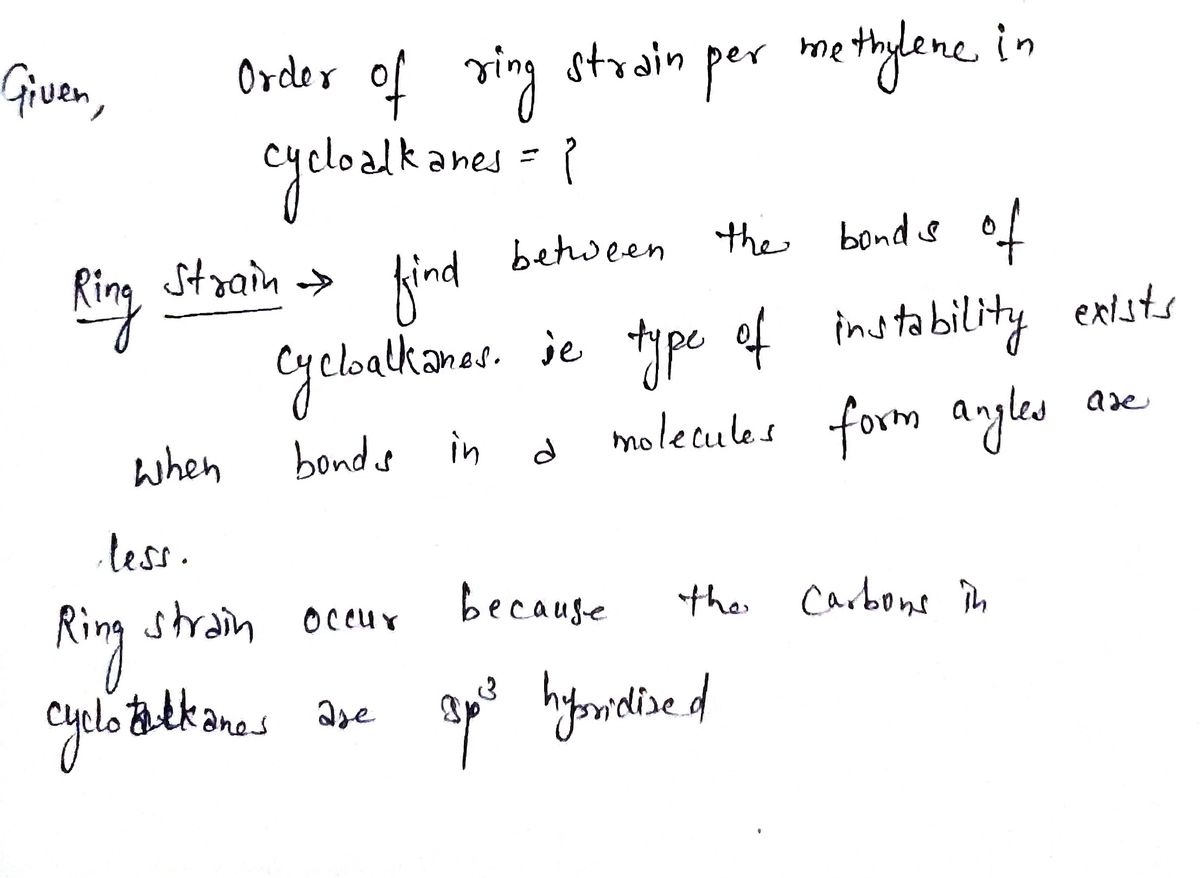 Given, Order of ring strain per methylene in
cycloalkanes = ?
Ring strain → find between the bonds of
cycloalkanes. ie type of instability exists
when bonds in a molecules form angles are
less.
Ring strain occur because the carbons in
cycloalkanes are sp³ hybridised